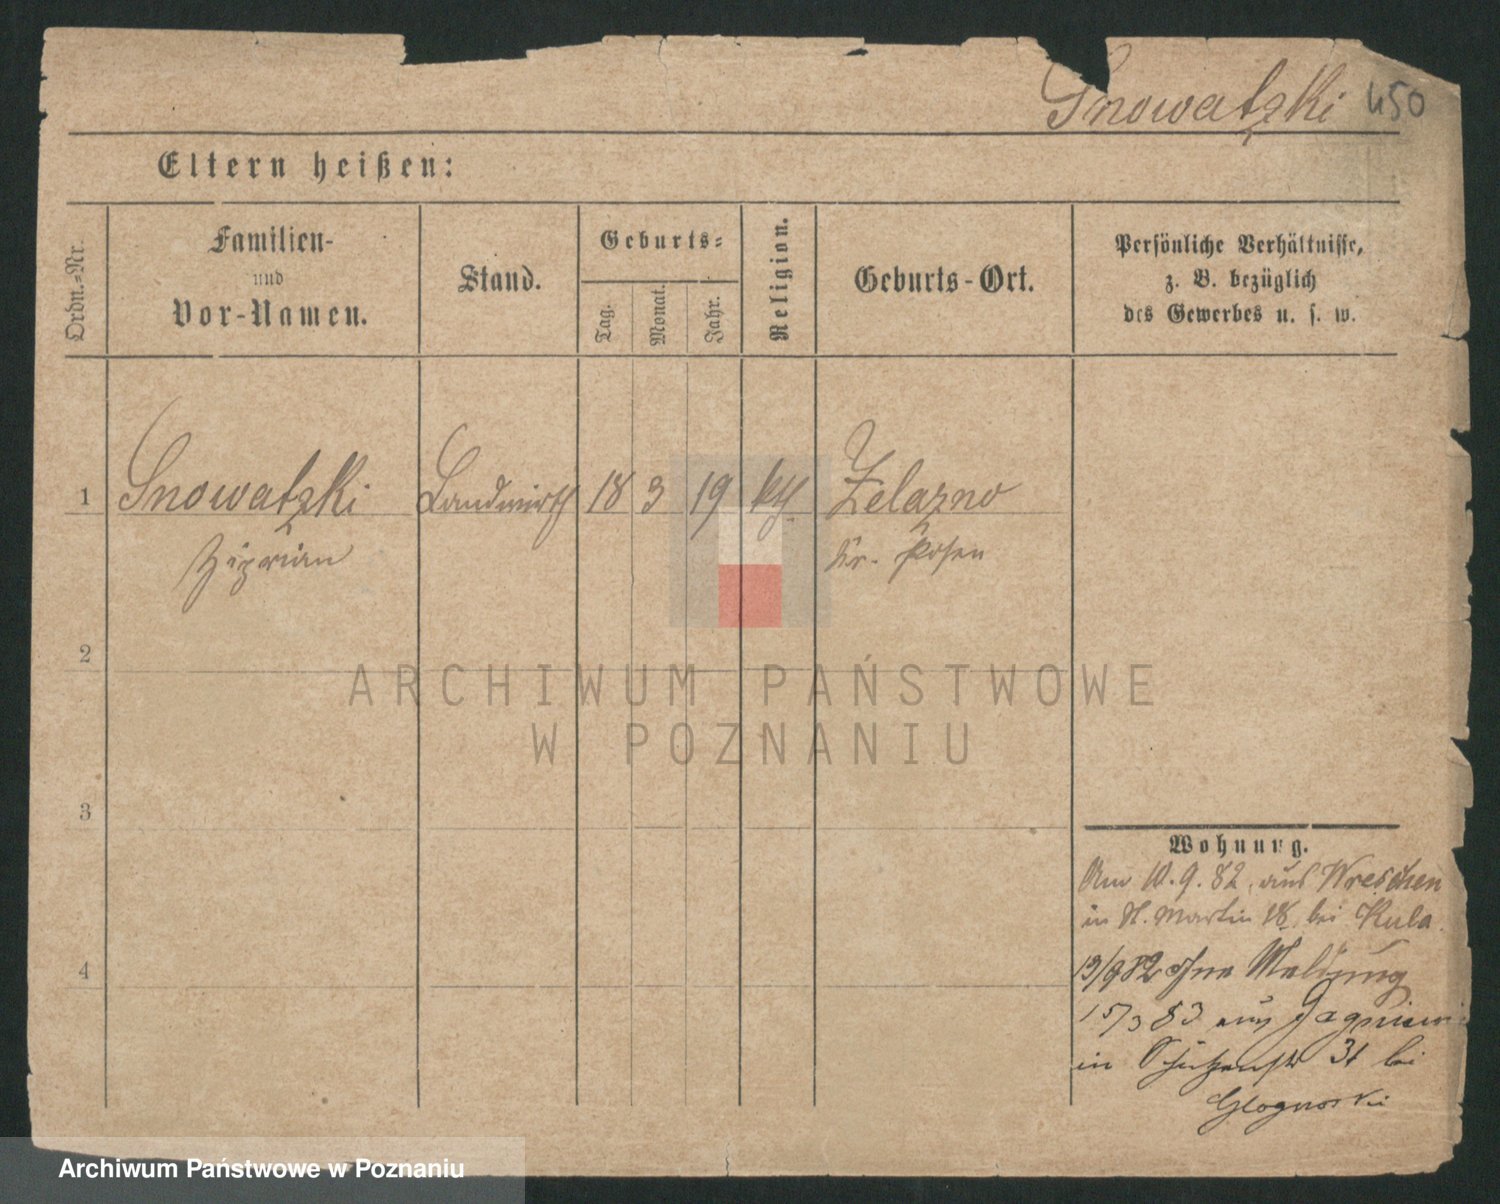 Snowatzki 450
Eltern heißen:
Ordn.-Nr.
Familien-
und
Vor-Namen.
Stand.
Geburts-
Tag.
Monat.
Jahr.
Religion.
Geburts-Ort.
Persönliche Verhältnisse,
z. B. bezüglich
des Gewerbes u. s. w.
1 Snowatzki Landwirth 18 3 19 kth Zelazno
Ziprian Kr. Posen
2
3
4
Wohnung.
Am 10.9.82. aus Wreschen
in St. Martin 18 bei Kula.
13/9 82 ohne Meldung
15/3 83 aus
in Schützenstr 31 bei
Glognowski
ARCHIWUM PAŃSTWOWE
W POZNANIU
Archiwum Państwowe w Poznaniu